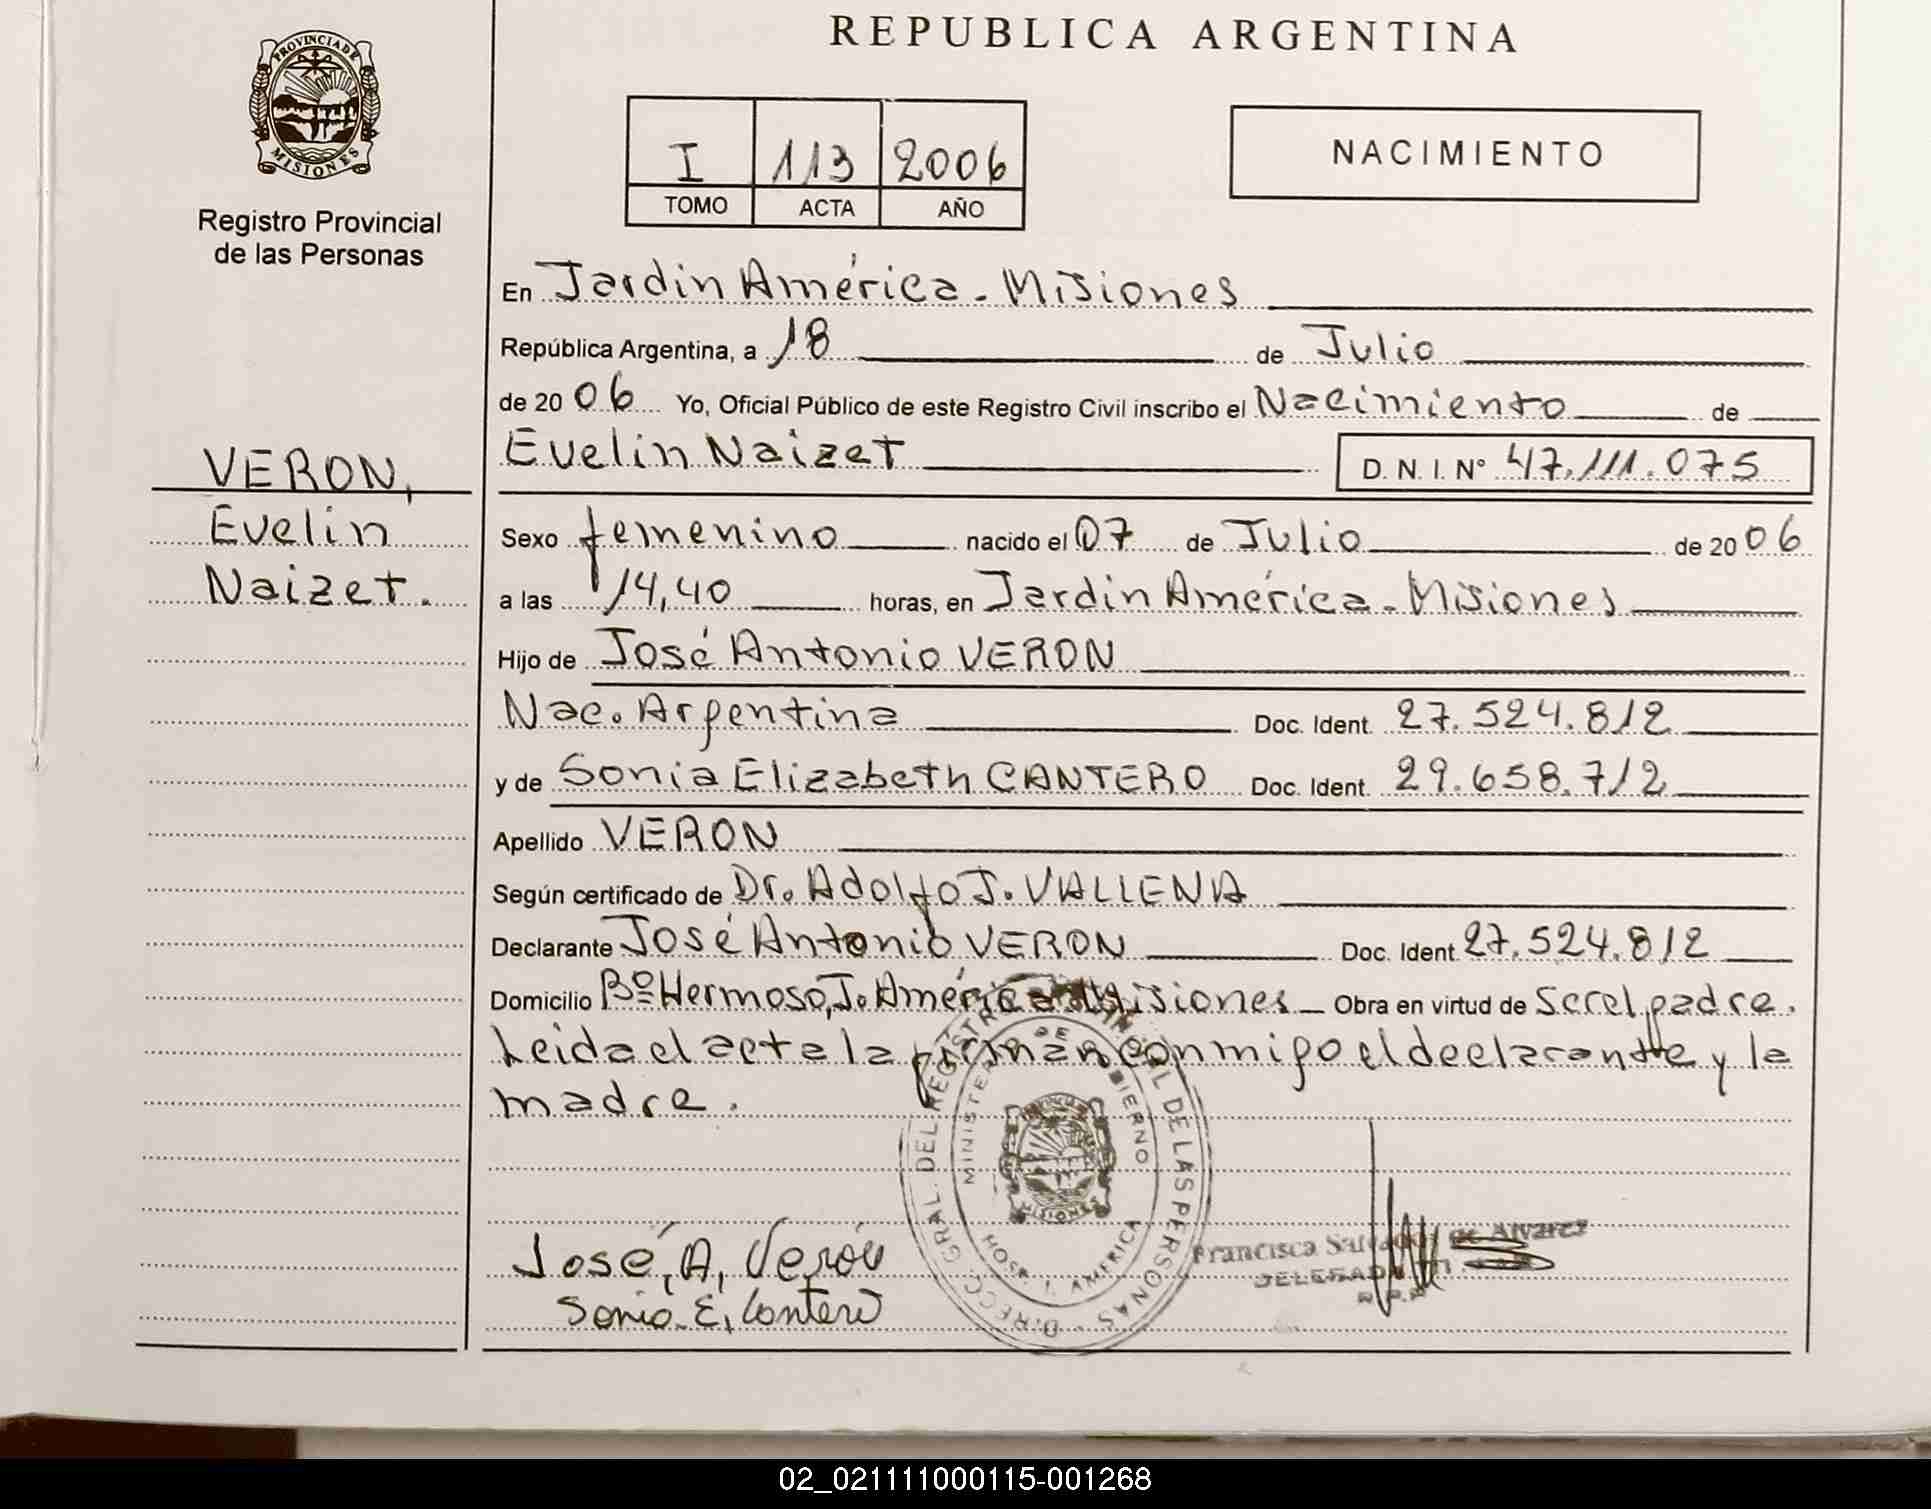 REPUBLICA ARGENTINA
PROVINCIA DE
MISIONES
Registro Provincial
de las Personas
I 113 2006
TOMO ACTA AÑO
NACIMIENTO
VERON,
Evelin
Naizet.
En Jardin América - Misiones
República Argentina, a 18 de Julio
de 2006 Yo, Oficial Público de este Registro Civil inscribo el Nacimiento de
Evelin Naizet D. N. I. N° 47.111.075
Sexo femenino nacido el 07 de Julio de 2006
a las 14,40 horas, en Jardin América - Misiones
Hijo de José Antonio VERON
Nac. Argentina Doc. Ident. 27.524.812
y de Sonia Elizabeth CANTERO Doc. Ident. 29.658.712
Apellido VERON
Según certificado de Dr. Adolfo J. VALLENA
Declarante José Antonio VERON Doc. Ident. 27.524.812
Domicilio Bº Hermoso, J. América - Misiones - Obra en virtud de Ser el padre.
Leida el acta la firman conmigo el declarante y la
madre.
DIRECC. GRAL. DEL REGISTRO PROVINCIAL DE LAS PERSONAS
MINISTERIO DE GOBIERNO
MISIONES
HOSP. J. AMERICA
José, A, Verón
Sonia E, Cantero
Francisca de Alvarez
DELEGADA
R.P.P
02_021111000115-001268